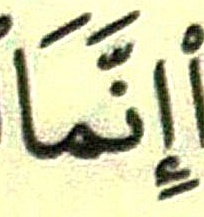 اْ إِنَّمَا